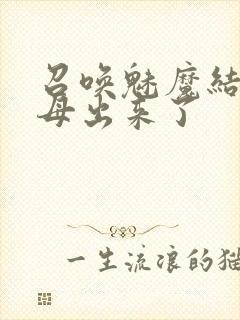 召唤魅魔结
母出来了
一生流浪的猫